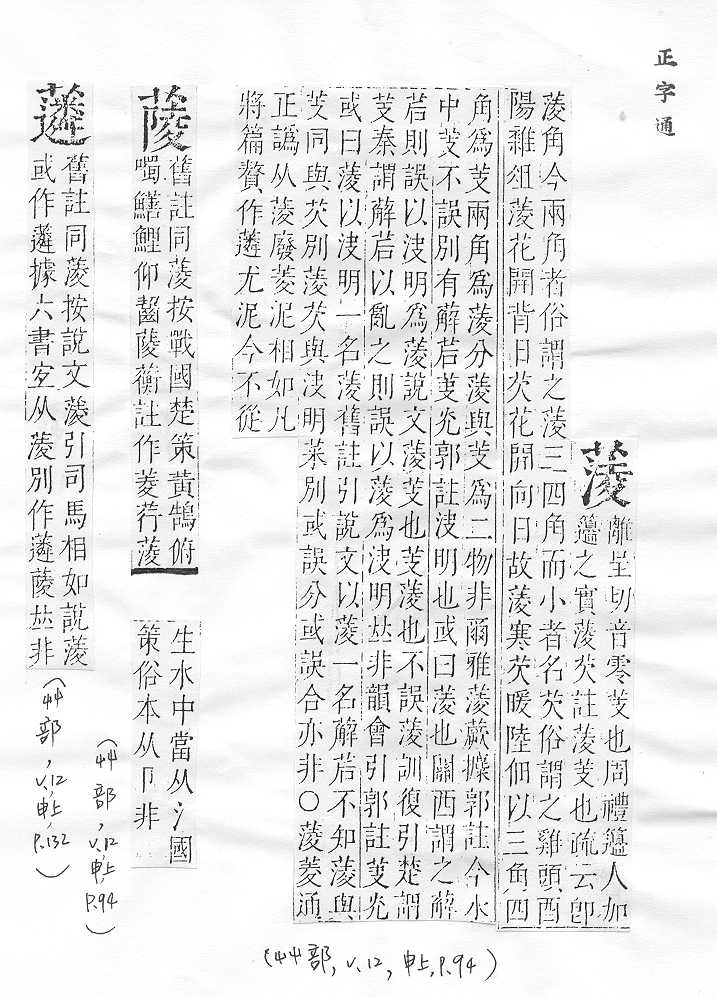 正字通
蔆
離呈切音零芰也周禮籩人加
籩之實蔆芡註蔆芰也疏云卽
蔆角今兩角者俗謂之蔆三四角而小者名芡俗謂之雞頭酉
陽雜俎蔆花開背日芡花開向日故蔆寒芡暖陸佃以三角四
角爲芰兩角爲蔆分蔆與芰爲二物非爾雅蔆蕨攗郭註今水
中芰不誤別有薢茩芵光郭註決明也或曰蔆也關西謂之薢
茩則誤以決明爲蔆說文蔆芰也芰蔆也不誤蔆訓復引楚謂
芰秦謂薢茩以亂之則誤以蔆爲決明𠀤非韻會引郭註芵光
或曰蔆以決明一名蔆舊註引說文以蔆一名薢茩不知蔆與
芰同與芡別蔆芡與決明菜別或誤分或誤合亦非○蔆菱通
正譌从蔆廢菱泥相如凡
將篇贅作蓤尤泥今不從
䔖
舊註同蔆按戰國楚策黃鵠俯
噣鱔鯉仰齧䔖衡註作菱荇蔆
生水中當从氵國
策俗本从卩非
(艸部, v.12, 申上, p.94)
蘧
舊註同蔆按說文蔆引司馬相如說蔆
或作遴據六書宜从蔆別作遴䔖𠀤非
(艸部, v.12, 申上, p.132)
(艸部, v.12, 申上, p.94)